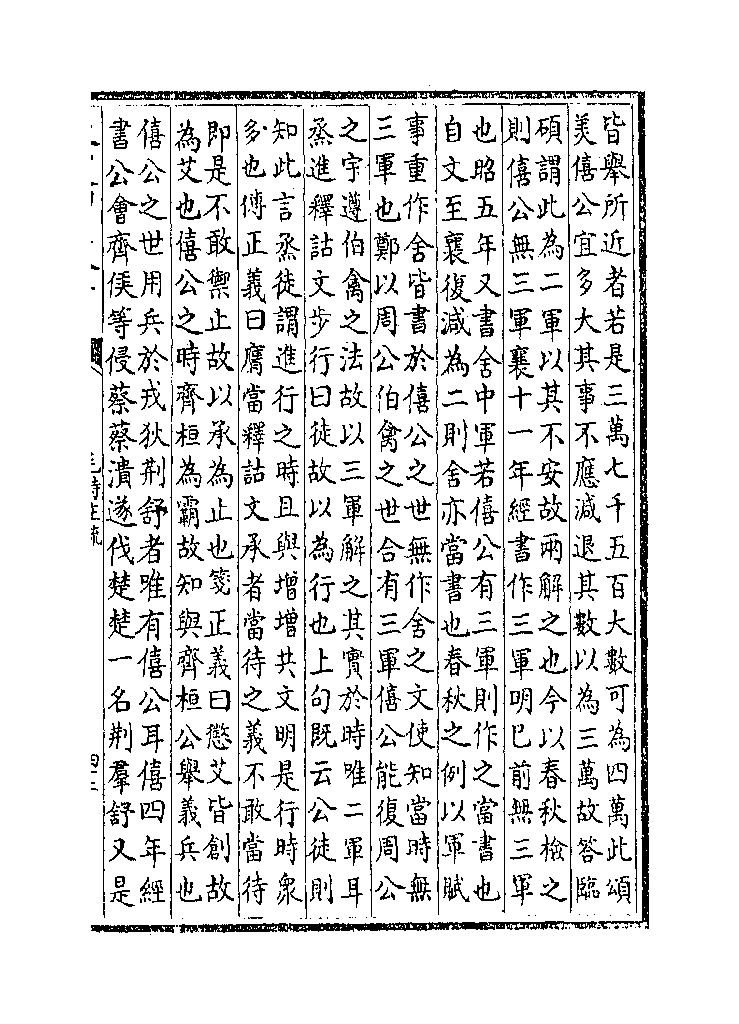 皆舉所近者若是三萬七千五百大數可為四萬此頌
美僖公宜多大其事不應減退其數以為三萬故答臨
碩謂此為二軍以其不安故兩解之也今以春秋檢之
則僖公無三軍襄十一年經書作三軍明已前無三軍
也昭五年又書舍中軍若僖公有三軍則作之當書也
自文至襄復減為二則舍亦當書也春秋之例以軍賦
事重作舍皆書於僖公之世無作舍之文使知當時無
三軍也鄭以周公伯禽之世合有三軍僖公能復周公
之宇遵伯禽之法故以三軍解之其實於時唯二軍耳
烝進釋詁文步行曰徒故以為行也上句既云公徒則
知此言烝徒謂進行之時且與增增共文明是行時衆
多也傳正義曰膺當釋詁文承者當待之義不敢當待
即是不敢禦止故以承為止也箋正義曰懲艾皆創故
為艾也僖公之時齊桓為霸故知與齊桓公舉義兵也
僖公之世用兵於戎狄荆舒者唯有僖公耳僖四年經
書公會齊侯等侵蔡蔡潰遂伐楚楚一名荆羣舒又是
毛詩注疏